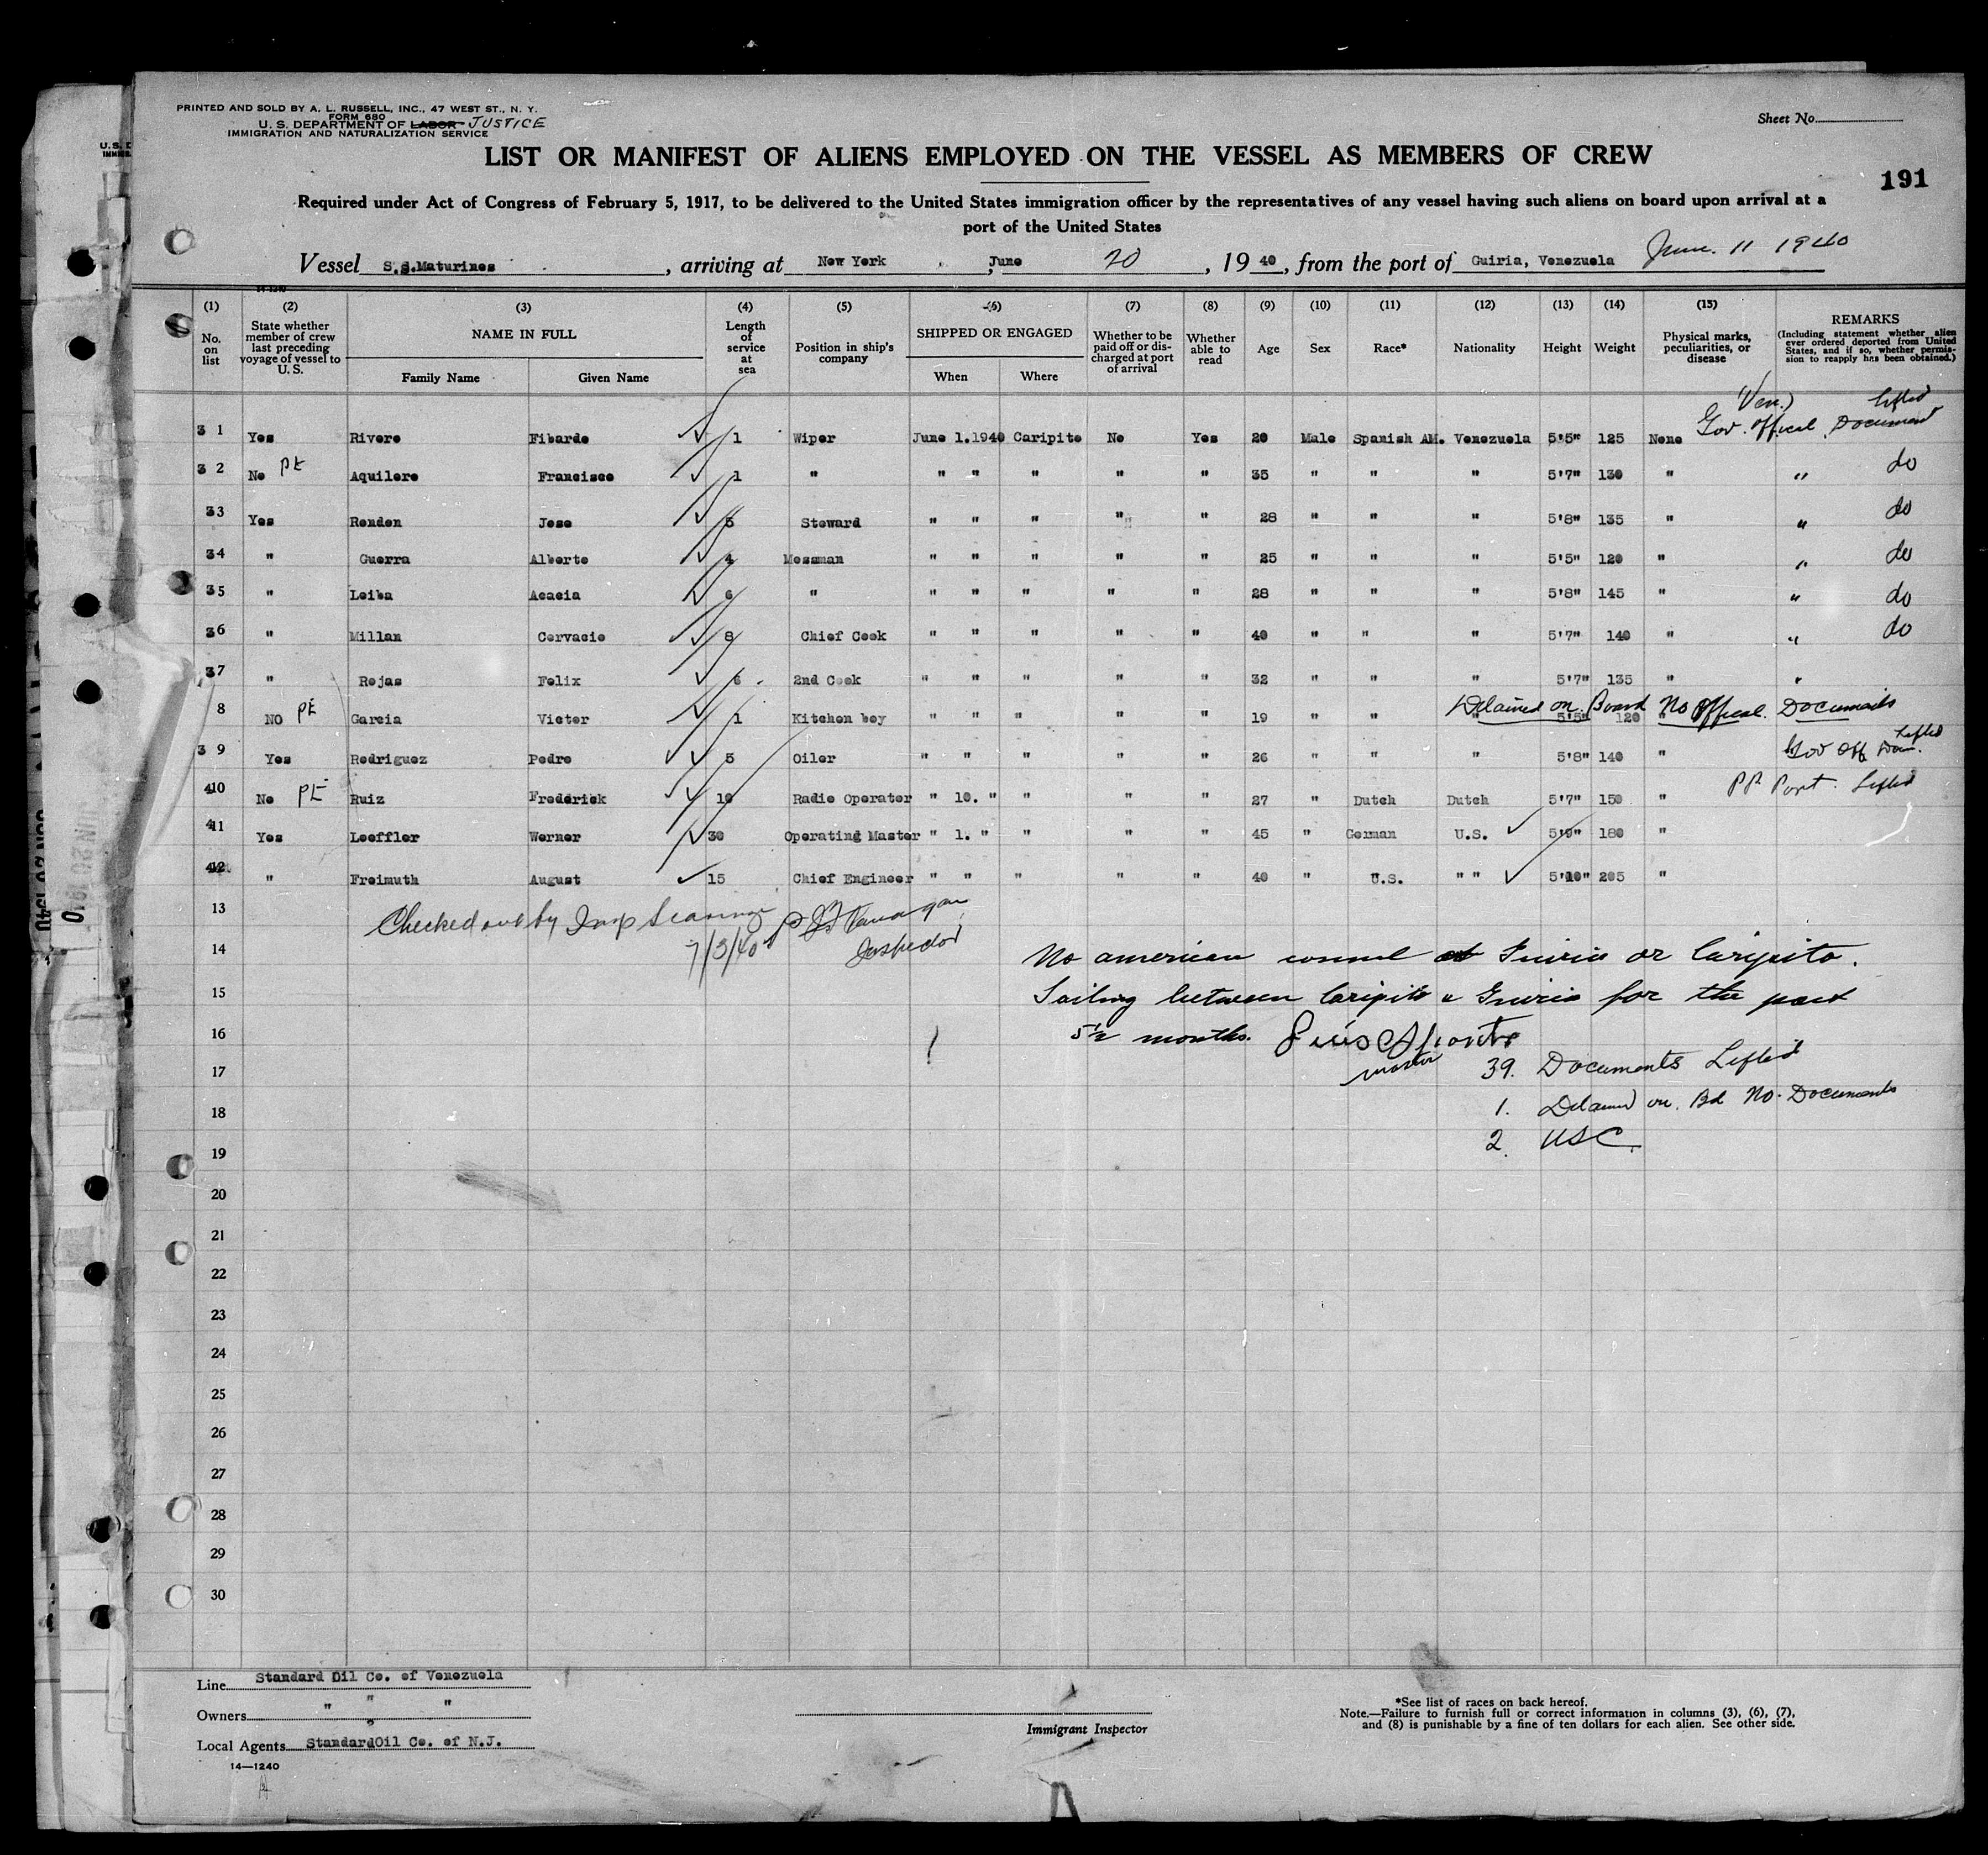 PRINTED AND SOLD BY A. L. RUSSELL, INC., 47 WEST ST., N. Y.
FORM 680
U. S. DEPARTMENT OF LABOR JUSTICE
IMMIGRATION AND NATURALIZATION SERVICE
Sheet No.
LIST OR MANIFEST OF ALIENS EMPLOYED ON THE VESSEL AS MEMBERS OF CREW
191
Required under Act of Congress of February 5, 1917, to be delivered to the United States immigration officer by the representatives of any vessel having such aliens on board upon arrival at a
port of the United States
Vessel S.S.Maturines, arriving at New York, June 20, 1940, from the port of Guiria, Venezuela June. 11 1940
(1) (2) (3) (4) (5) (6) (7) (8) (9) (10) (11) (12) (13) (14) (15)
No. on list
State whether member of crew last preceding voyage of vessel to U. S.
NAME IN FULL
Family Name Given Name
Length of service at sea
Position in ship's company
SHIPPED OR ENGAGED
When Where
Whether to be paid off or discharged at port of arrival
Whether able to read
Age Sex Race* Nationality Height Weight
Physical marks, peculiarities, or disease
REMARKS
(Including statement whether alien ever ordered deported from United States, and if so, whether permission to reapply has been obtained.)
(Ven.) Lifted
31 Yes Rivero Fibardo 1 Wiper June 1.1940 Caripito No Yes 20 Male Spanish AM. Venezuela 5'5" 125 None Gov. Offical Document
32 No PE Aquilero Francisco 1 " " " " " " 35 " " " 5'7" 130 " " do
33 Yes Rendon Jose 5 Steward " " " " " 28 " " " 5'8" 135 " " do
34 " Guerra Alberto 4 Messman " " " " " 25 " " " 5'5" 120 " " do
35 " Leiba Acacia 6 " " " " " " 28 " " " 5'8" 145 " " do
36 " Millan Cervacio 8 Chief Cook " " " " " 40 " " " 5'7" 140 " " do
37 " Rojas Felix 6 2nd Cook " " " " " 32 " " " 5'7" 135 " "
8 NO PE Garcia Victor 1 Kitchen boy " " " " " 19 " " " 5'5" 120 " Detained on Board No Offical. Documents
39 Yes Rodriguez Pedro 5 Oiler " " " " " 26 " " " 5'8" 140 " Gov Off Docu. Lifted
410 No PE Ruiz Frederick 10 Radio Operator " 10. " " " " 27 " Dutch Dutch 5'7" 150 " PP Port. Lifted
411 Yes Loeffler Werner 30 Operating Master " 1. " " " " 45 " German U.S. 5'9" 180 "
42 " Freimuth August 15 Chief Engineer " " " " " 40 " U.S. " " 5'10" 205 "
13
Checked out by Insp
7/3/40
Inspector
14
No american consul at Guiria or Caripito.
15
Sailing between Caripito & Guiria for the past
16
5½ months.
master
17
39. Documents Lifted
18
1. Detained on Bd No. Documents
19
2. USC.
20
21
22
23
24
25
26
27
28
29
30
Line Standard Oil Co. of Venezuela
Owners " " "
Local Agents StandardOil Co. of N.J.
14—1240
Immigrant Inspector
*See list of races on back hereof.
Note.—Failure to furnish full or correct information in columns (3), (6), (7),
and (8) is punishable by a fine of ten dollars for each alien. See other side.